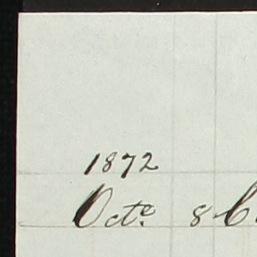 1872
Octe. 8